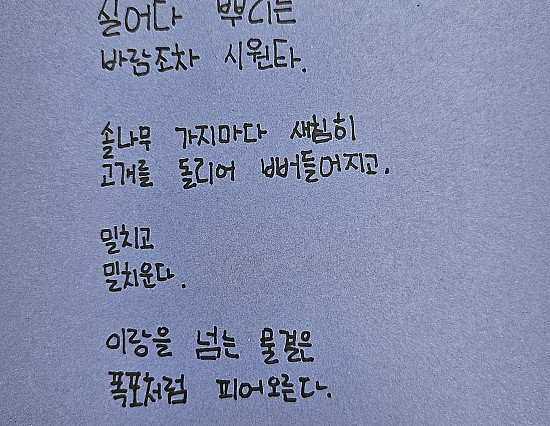 실어다 뿌리는
바람조차 시원타.
솔나무 가지마다 새침히
고개를 돌리어 뻐들어지고.
밀치고
밀치운다.
이랑을 넘는 물결은
폭포처럼 피어오른다.